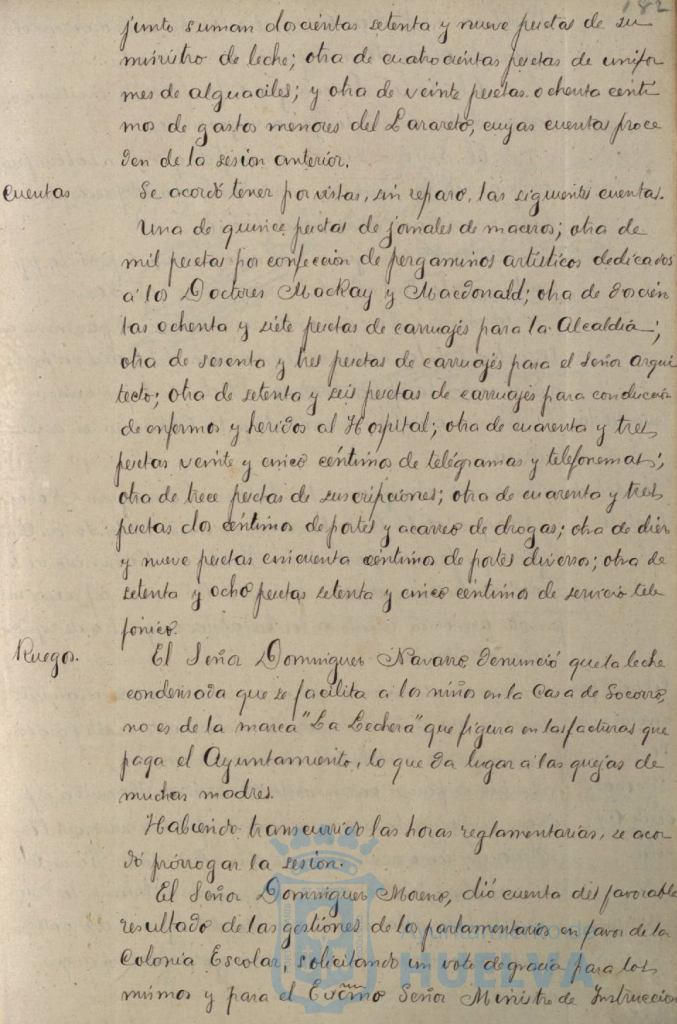 182
junto suman doscientas setenta y nueve pesetas de su
ministro de leche; otra de cuatrocientas pesetas de unifor
mes de alguaciles; y otra de veinte pesetas ochenta cénti
mos de gastos menores del Lazareto, cuyas cuentas proce
den de la sesión anterior.
Cuentas
Se acordó tener por vistas, sin reparo, las siguientes cuentas.
Una de quince pesetas de jornales de maceros; otra de
mil pesetas por confección de pergaminos artísticos dedicados
á los Doctores Mackay y Macdonald; otra de doscien
tas ochenta y siete pesetas de carruajes para la Alcaldía;
otra de sesenta y tres pesetas de carruajes para el Señor arqui
tecto; otra de setenta y seis pesetas de carruajes para conducción
de enfermos y heridos al Hospital; otra de cuarenta y tres
pesetas veinte y cinco céntimos de telégramas y telefonemas;
otra de trece pesetas de suscripciones; otra de cuarenta y tres
pesetas dos céntimos de portes y acarreo de drogas; otra de diez
y nueve pesetas cincuenta céntimos de portes diversos; otra de
setenta y ocho pesetas setenta y cinco céntimos de servicio tele
fónico.
Ruegos.
El Señor Domínguez Navarro, denunció que la leche
condensada que se facilita á los niños en la Casa de Socorro,
no es de la marca "La Lechera" que figura en las facturas que
paga el Ayuntamiento, lo que da lugar á las quejas de
muchas madres.
Habiendo transcurrido las horas reglamentarias, se acor
dó prórrogar la sesión.
El Señor Domínguez Moreno, dió cuenta del favorable
resultado de las gestiones de los parlamentarios en favor de la
Colonia Escolar, solicitando un voto de gracia para los
mismos y para el Excmo Señor Ministro de Instrucción
HUELVA